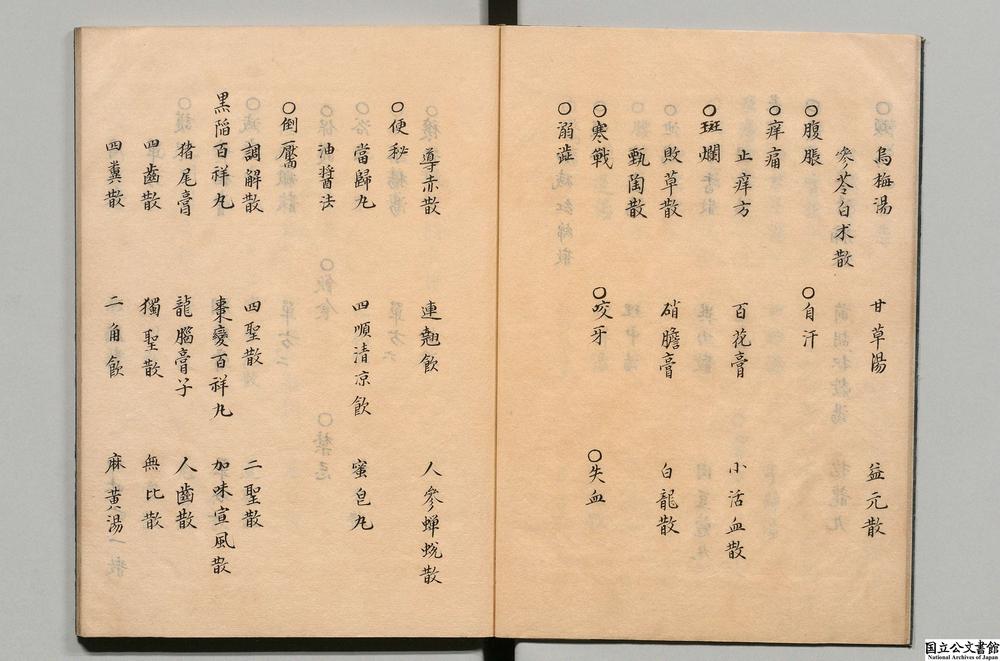 烏梅湯 甘草湯 益元散
參苓白朮散
○腹脹 ○自汗
○痒痛
止痒方 百花膏 小活血散
○斑爛
敗草散 硝膽膏 白龍散
甄陶散
○寒戰 ○咬牙 ○失血
○溺澁
導赤散 連翹飲 人參蟬蛻散
○便秘
當歸丸 四順清凉飲 蜜皂丸
油醬法
○倒靨
調解散 四聖散 二聖散
黒陥百祥丸 棗變百祥丸 加味宣風散
猪尾膏 龍腦膏子 人齒散
四齒散 獨聖散 無比散
四糞散 二角飲 麻黄湯
国立公文書館
National Archives of Japan